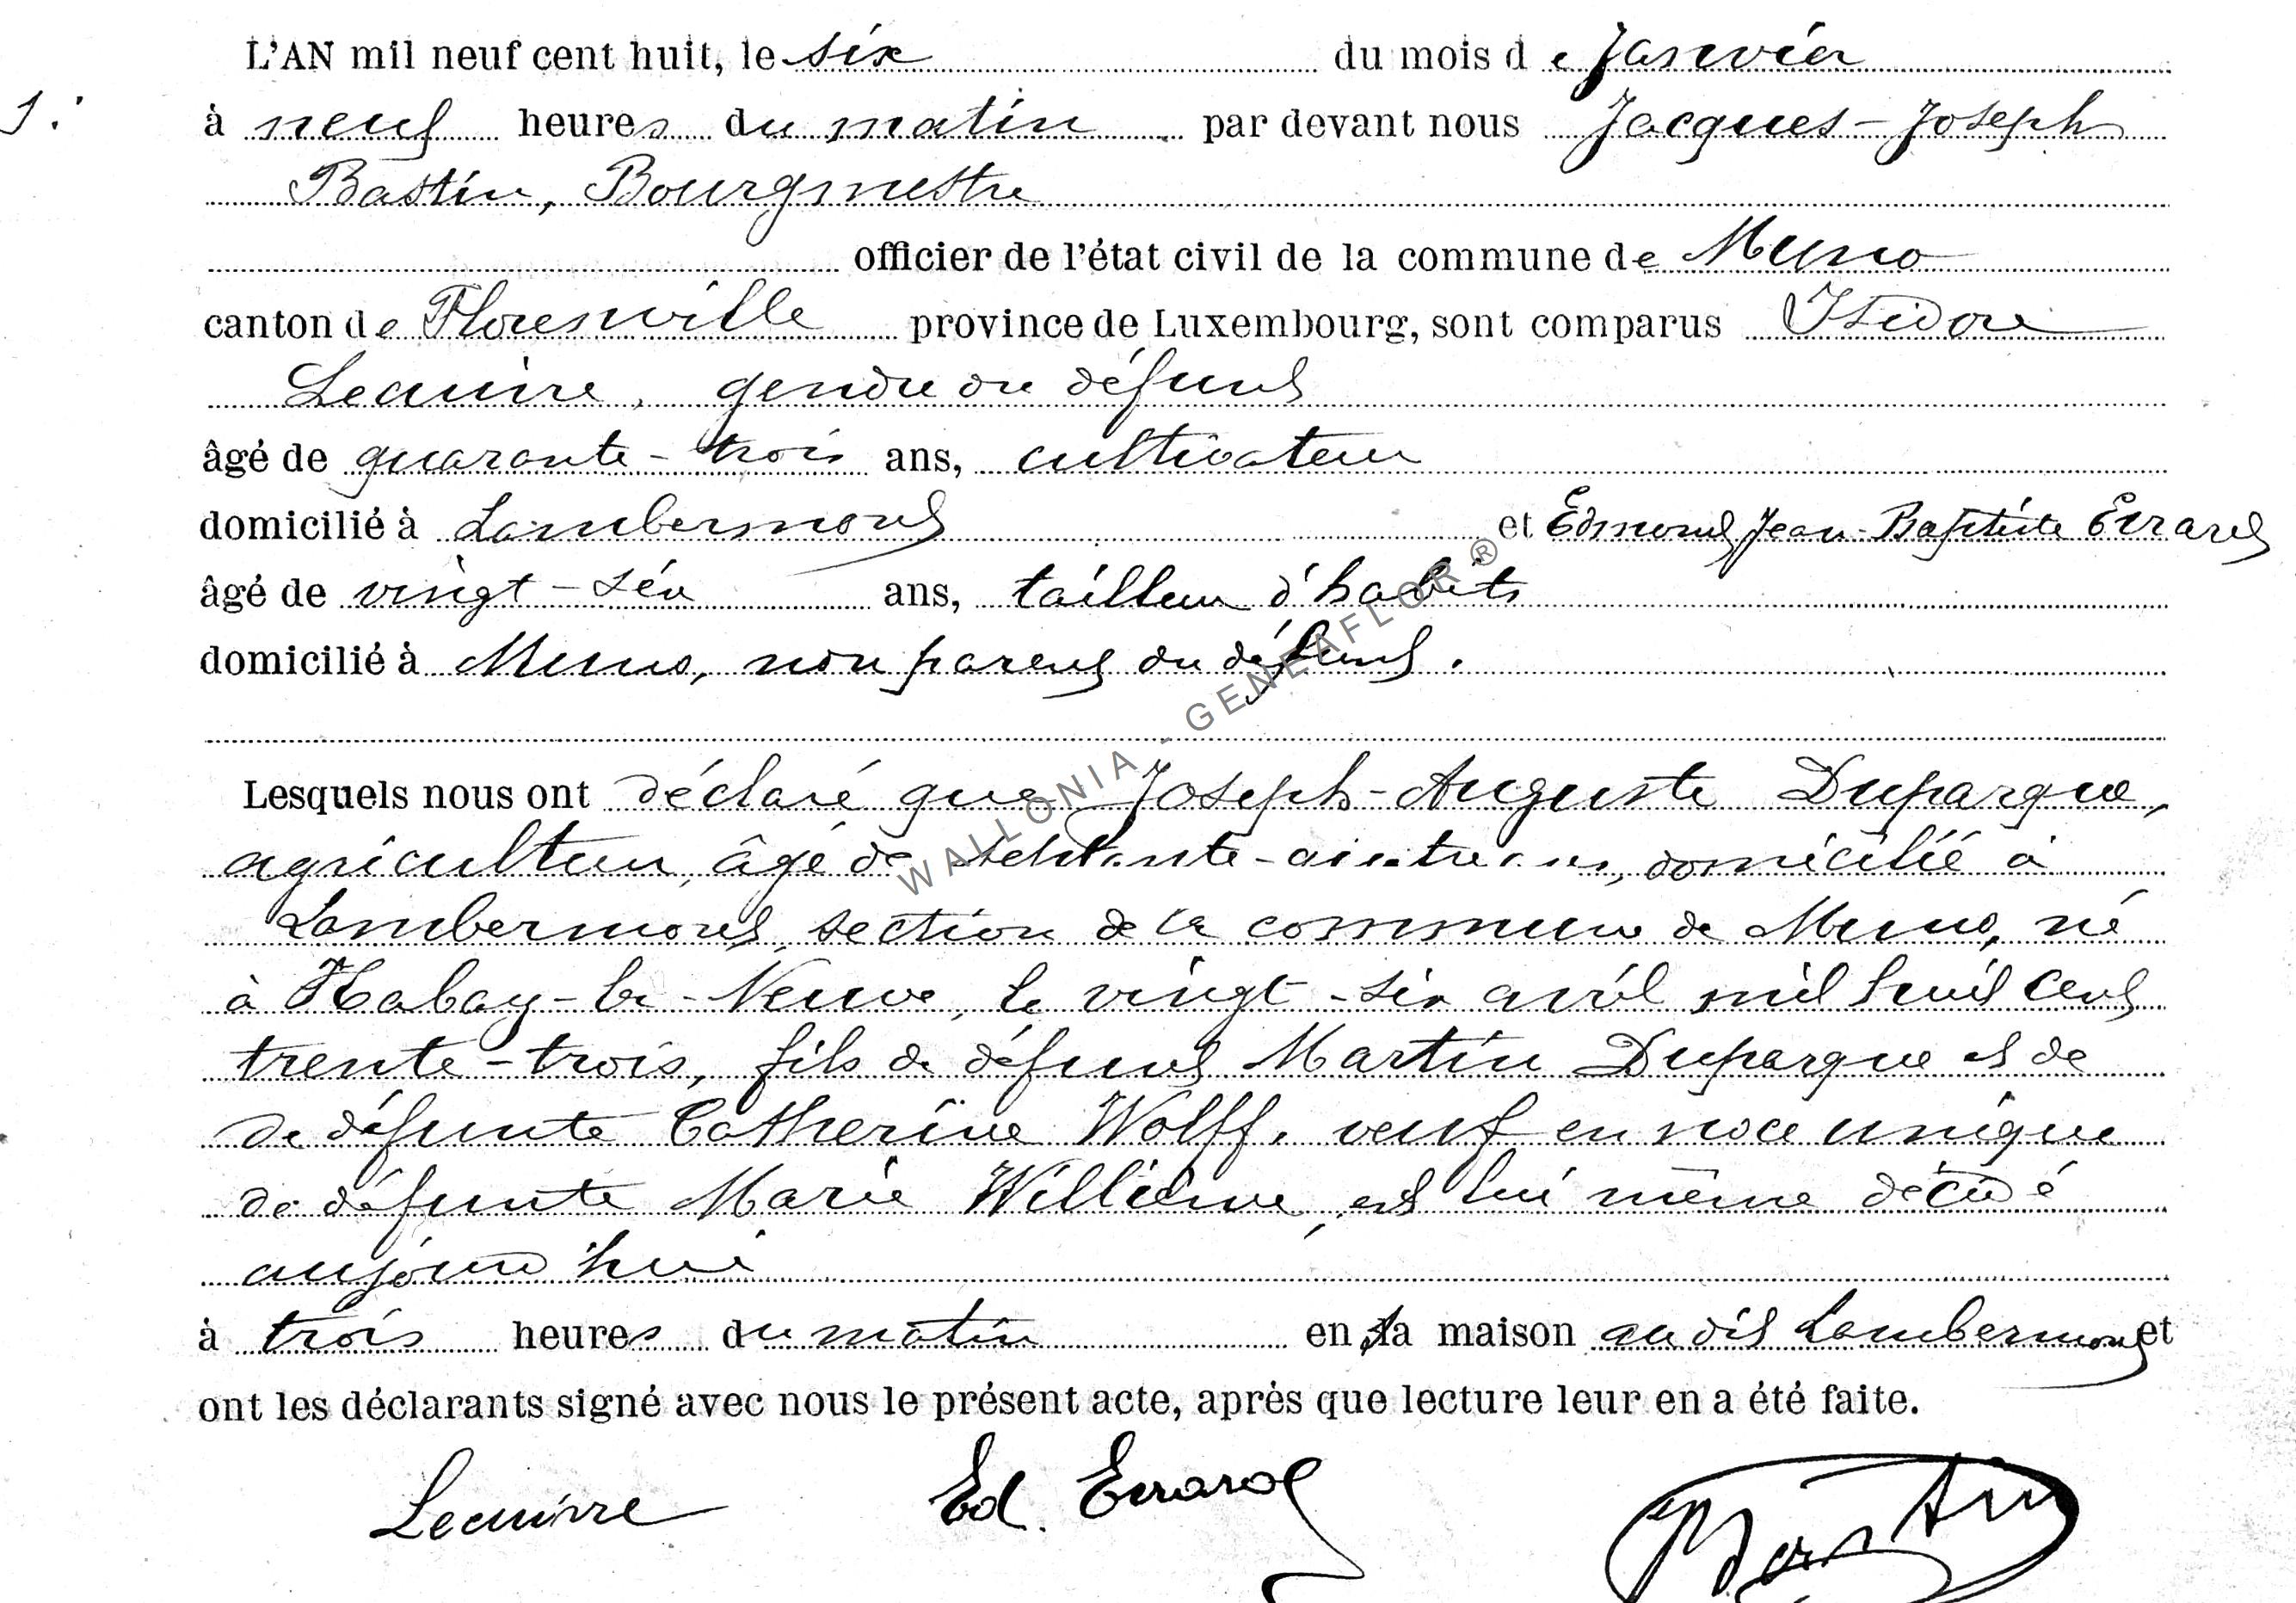 L'AN mil neuf cent huit, le six du mois de Janvier
1:
à neuf heures du matin par devant nous Jacques-Joseph
Bastin, Bourgmestre
officier de l'état civil de la commune de Muno
canton de Florenville province de Luxembourg, sont comparus Isidore
Lecuivre, gendre du défunt
âgé de quarante-trois ans, cultivateur
domicilié à Lambermont et Edmond Jean-Baptiste Errard
âgé de vingt-six ans, tailleur d'habits
domicilié à Muno, non parent du défunt.
Lesquels nous ont déclaré que Joseph-Auguste Duparque,
agriculteur, âgé de ans, domicilié à
Lambermont, section de la commune de Muno, né
à Habay-la-Neuve, le vingt-six avril mil huit cent
trente-trois, fils de défunt Martin Duparque et de
de défunte Catherine Wolff, veuf en noce unique
de défunte Marie Willième, est lui même décédé
aujourd'hui
à trois heures du matin en sa maison au dit Lambermont et
ont les déclarants signé avec nous le présent acte, après que lecture leur en a été faite.
Lecuivre Ed. Errard Bastin
WALLONIA - GENEAFLOR ®